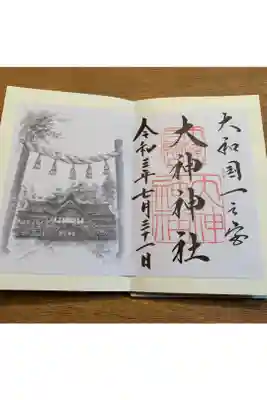 大和国一之宮
大神神社
令和三年七月三十一日